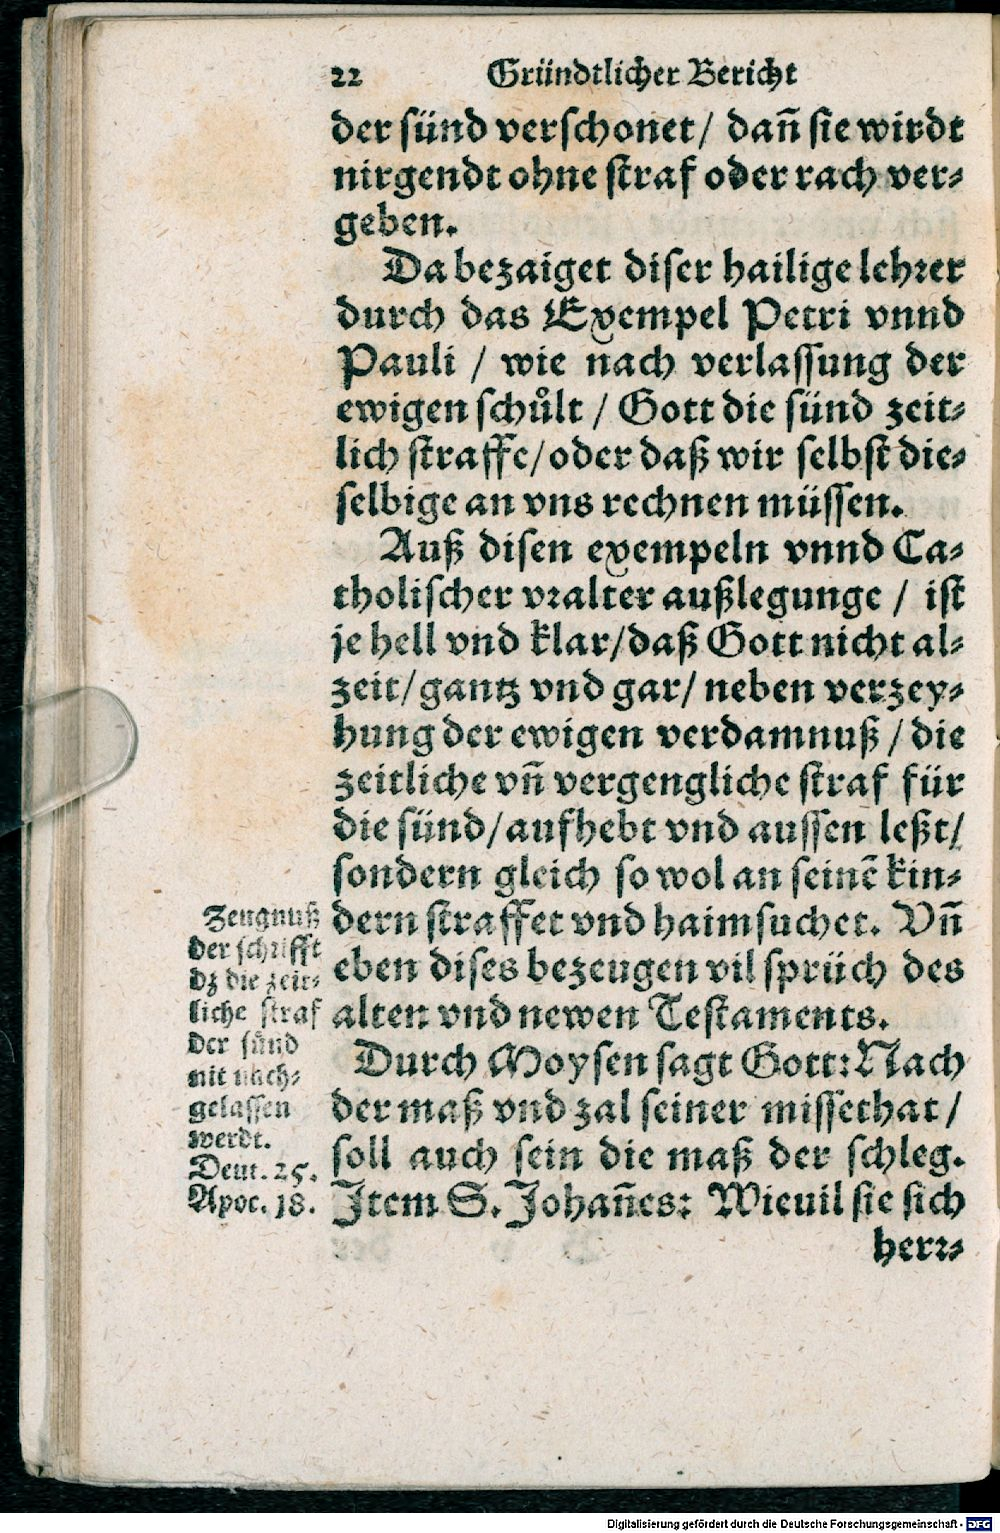 22 Gründtlicher Bericht
der sünd verschonet / dañ sie wirdt
nirgendt ohne straf oder rach ver⸗
geben.
Da bezaiget diser hailige lehrer
durch das Exempel Petri vnnd
Pauli / wie nach verlassung der
ewigen schůlt / Gott die sünd zeit⸗
lich straffe / oder daß wir selbst die⸗
selbige an vns rechnen müssen.
Auß disen exempeln vnnd Ca⸗
tholischer vralter außlegunge / ist
je hell vnd klar / daß Gott nicht al⸗
zeit / gantz vnd gar / neben verzey⸗
hung der ewigen verdamnuß / die
zeitliche vñ vergengliche straf für
die sünd / aufhebt vnd aussen leßt /
sondern gleich so wol an seinē kin⸗
dern straffet vnd haimsuchet. Vñ
eben dises bezeugen vil sprüch des
alten vnd newen Testaments.
Durch Moysen sagt Gott: Nach
der maß vnd zal seiner missethat /
soll auch sein die maß der schleg.
Item S. Johañes: Wieuil sie sich
herr⸗
Zeugnuß
der schrifft
dz die zeit⸗
liche straf
der sünd
nit nach⸗
gelassen
werdt.
Deut. 25.
Apoc. 18.
Digitalisierung gefördert durch die Deutsche Forschungsgemeinschaft - DFG